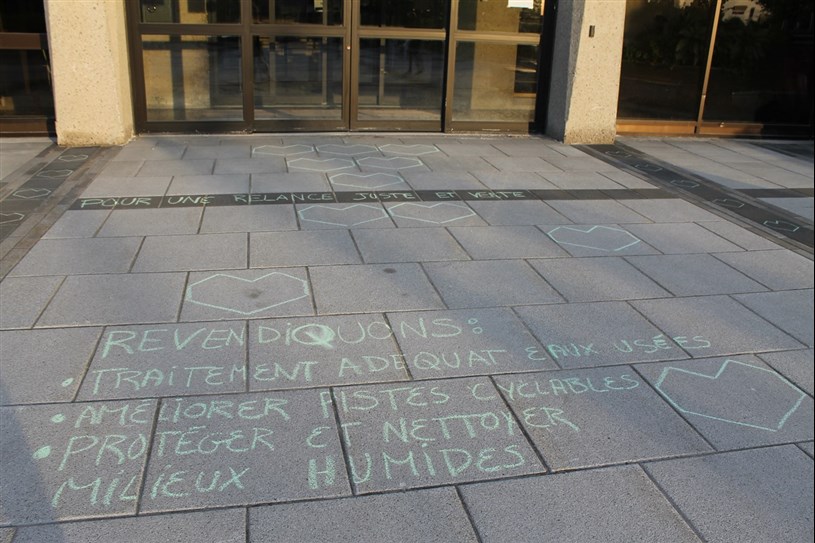 POUR UNE RELANCE JUSTE ET VERTE
REVENDIQUONS:
• TRAITEMENT ADEQUAT EAUX USÉES
• AMÉLIORER PISTES CYCLABLES
• PROTÉGER ET NETTOYER
MILIEUX HUMIDES